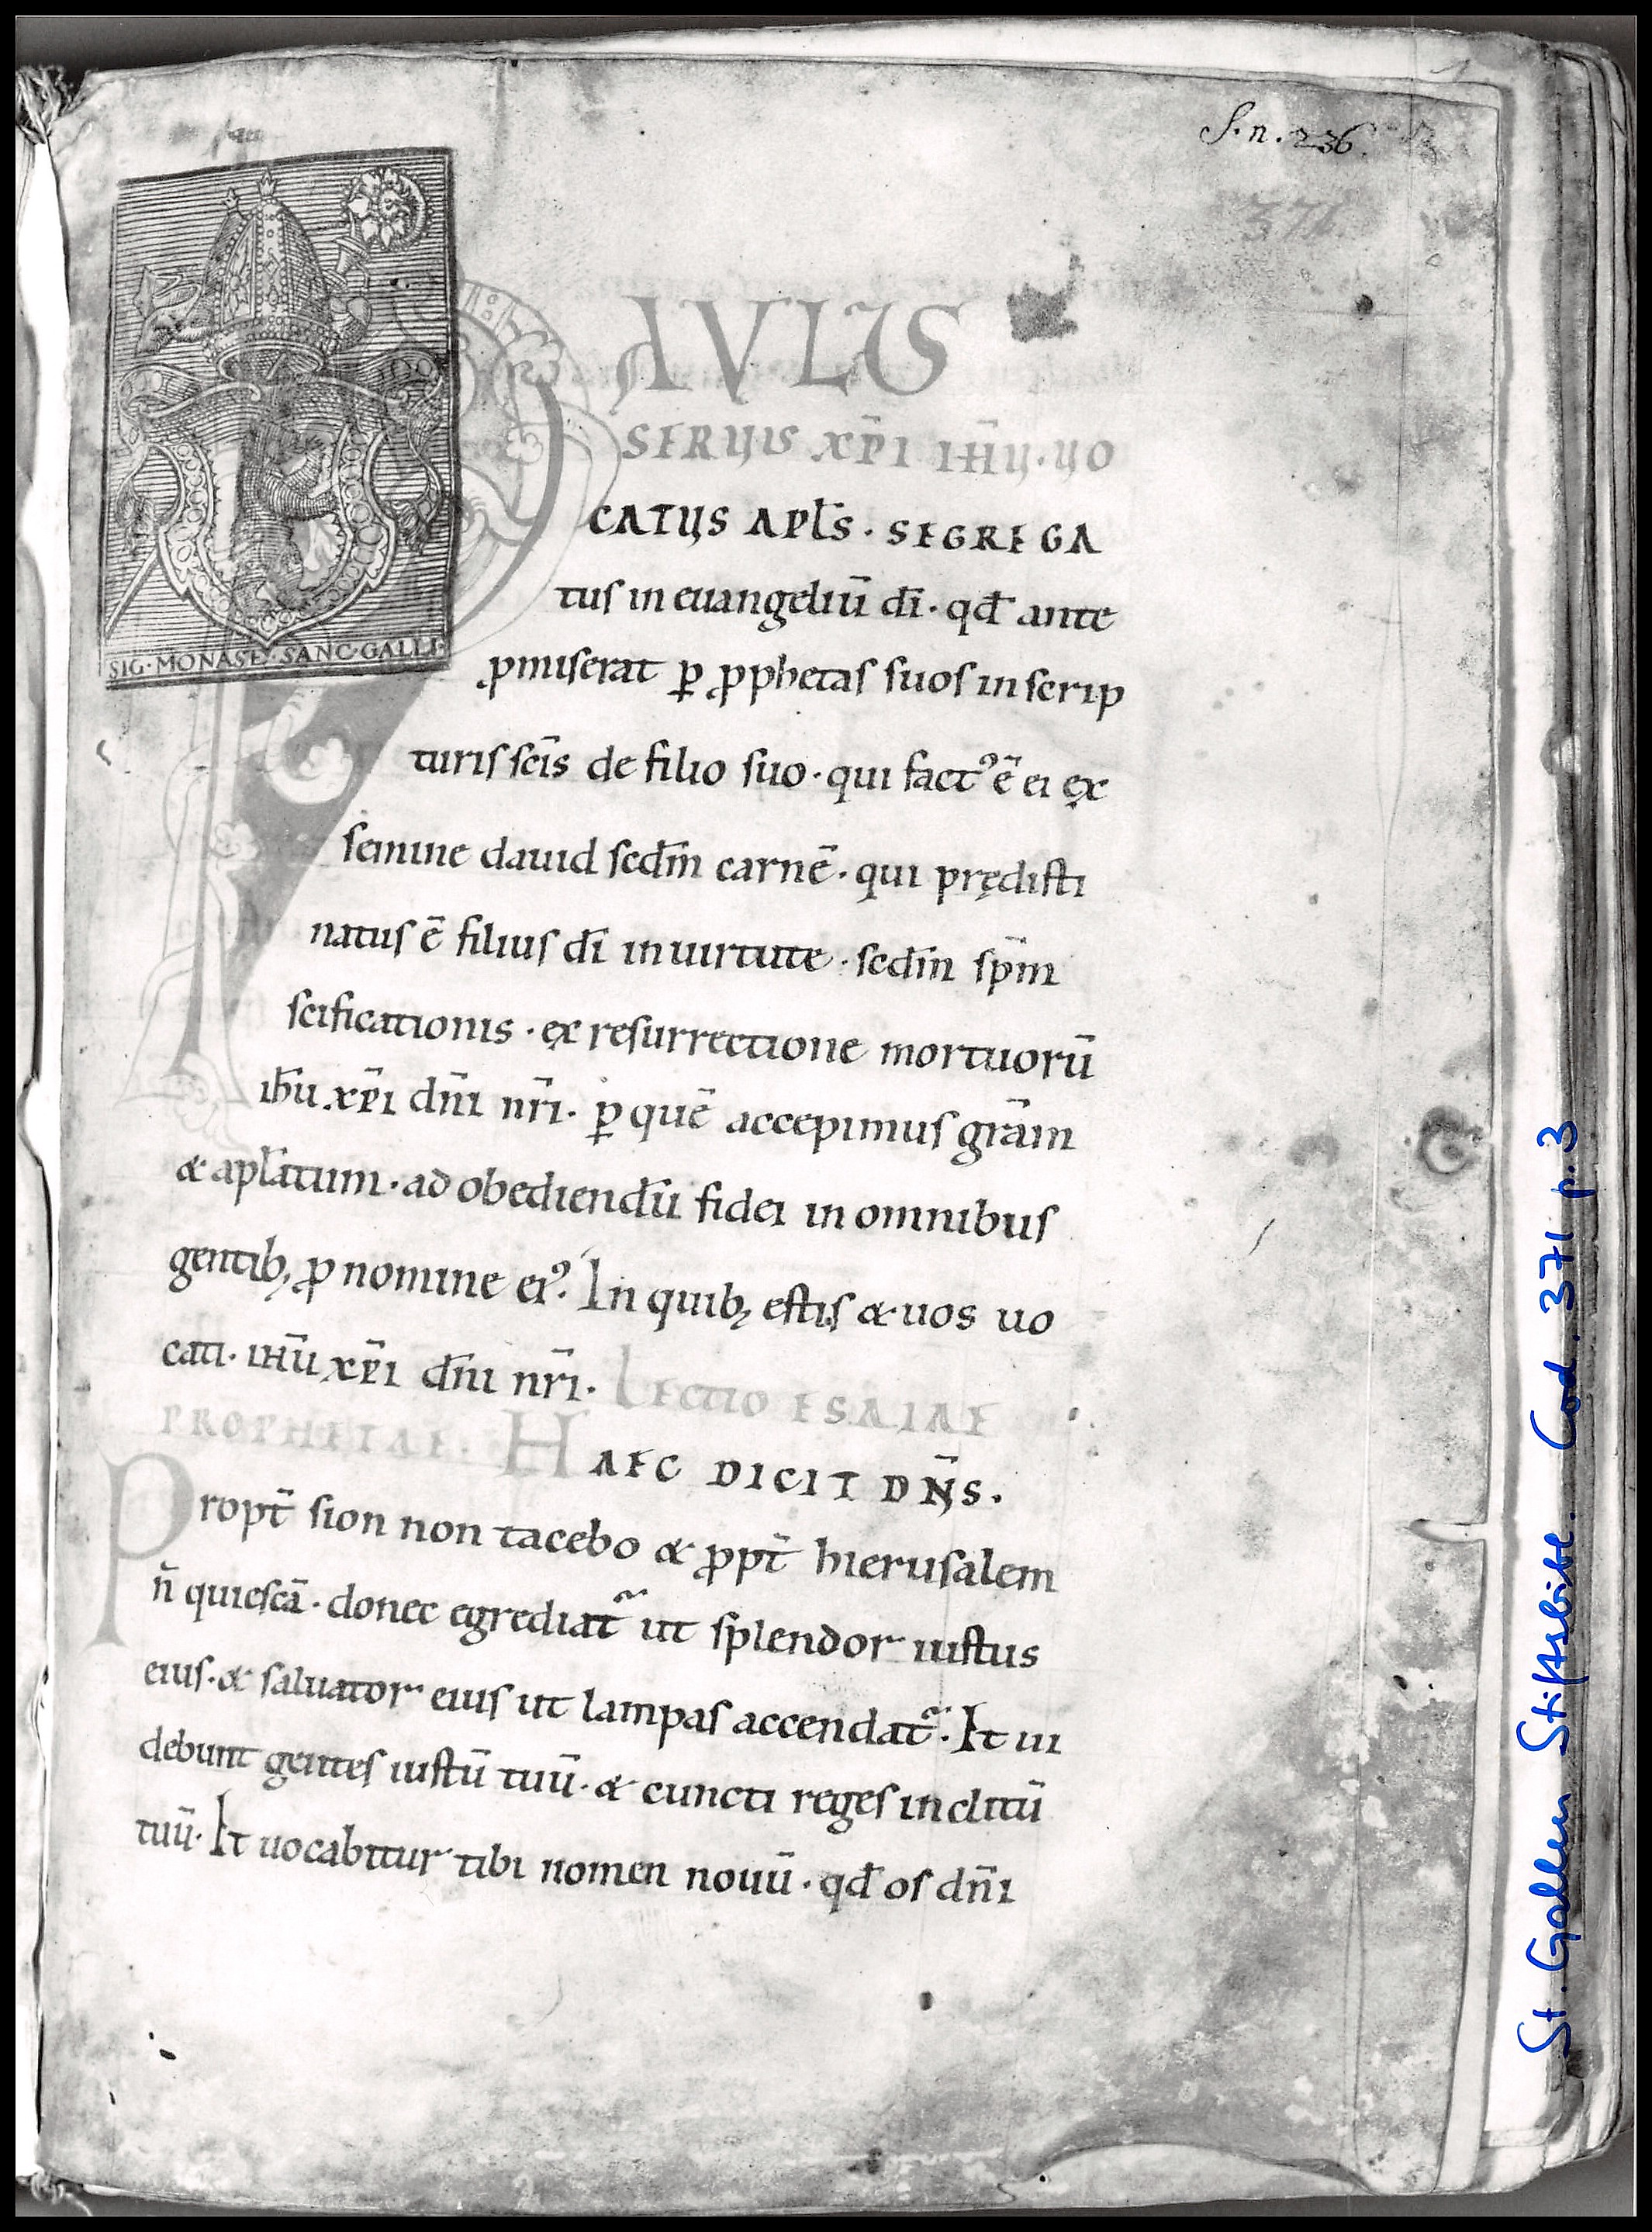 1
S. n. 236.
371
PAULUS
SERUUS XP̄I IHŪ · UO
CATUS APLS̄ · SEGREGA
tuſ in euangeliū dī · qđ ante
ꝓmiſerat ꝑ ꝓphetaſ ſuoſ in ſcrip
turiſ ſcīs de filio ſuo · qui factꝰ ē ei ex
ſemine dauid ſcdm̄ carnē · qui prędiſti
natuſ ē filiuſ dī in uirtute · ſcdm̄ ſpm̄
ſcificationis · ex reſurrectione mortuorū
ihu̅ xp̄i dn̄i nr̄i · ꝑ quē accepimuſ gr̄am
& apl̄atum · ad obediendū fidei in omnibuſ
gentibꝫ ꝓ nomine eiꝰ · In quibꝫ eſtiſ & uos uo
cati · ihū xp̄i dn̄i nr̄i · LECTIO ESAIAE
PROPHETAE · HAEC DICIT DN̄S ·
Propt̄ ſion non tacebo & ꝓpt̄ hieruſalem
n̄ quieſcā · donec egrediat᷑ ut ſplendor iuſtus
eiuſ · & ſaluator eiuſ ut lampaſ accendat᷑ · Et ui
debunt genteſ iuſtū tuū · & cuncti regeſ inclitū
tuū · Et uocabitur tibi nomen nouū · qđ oſ dn̄i
SIG · MONAST · SANC · GALLI ·
St. Gallen Stiftsbibl. Cod. 371 p. 3